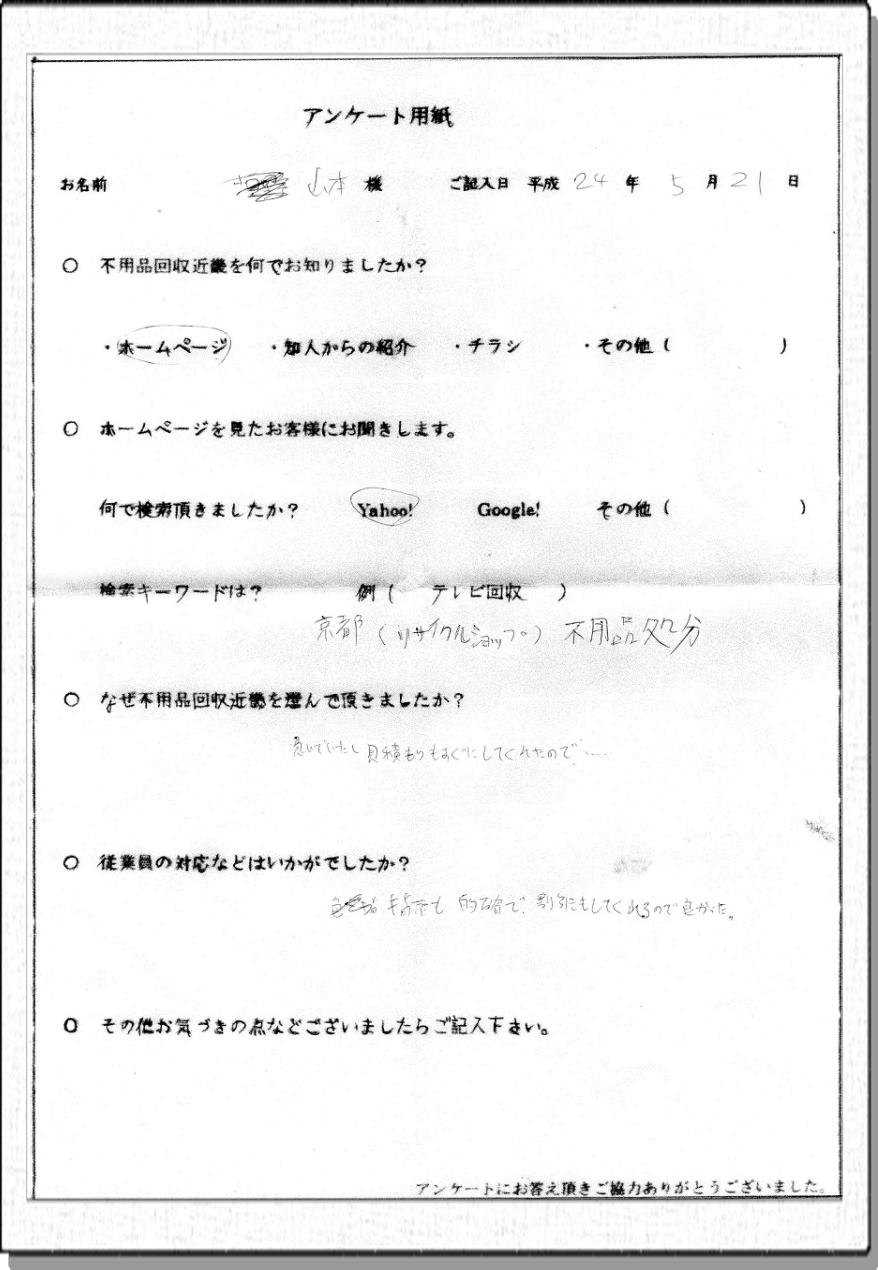 アンケート用紙
お名前 山本 様 ご記入日 平成 24 年 5 月 21 日
○ 不用品回収近畿を何でお知りましたか？
・ホームページ ・知人からの紹介 ・チラシ ・その他 ( )
○ ホームページを見たお客様にお聞きします。
何で検索頂きましたか？ Yahoo! Google! その他 ( )
検索キーワードは？ 例 ( テレビ回収 )
京都 (リサイクルショップ) 不用品処分
○ なぜ不用品回収近畿を選んで頂きましたか？
急いでいたし 見積もりもすぐにしてくれたので……
○ 従業員の対応などはいかがでしたか？
指示も 的確で、割引にもしてくれるので良かった。
○ その他お気づきの点などございましたらご記入下さい。
アンケートにお答え頂きご協力ありがとうございました。